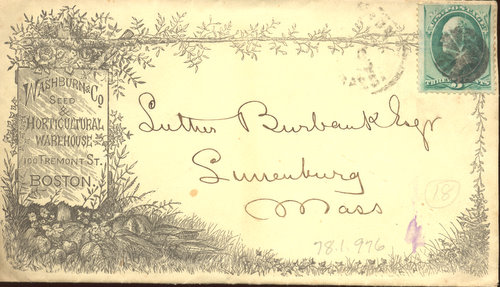 WASHBURN & CO
SEED
&
HORTICULTURAL
WAREHOUSE
100 TREMONT ST.
BOSTON.
Luther Burbank Esqr
Lunenburg
Mass
18
78.1.976